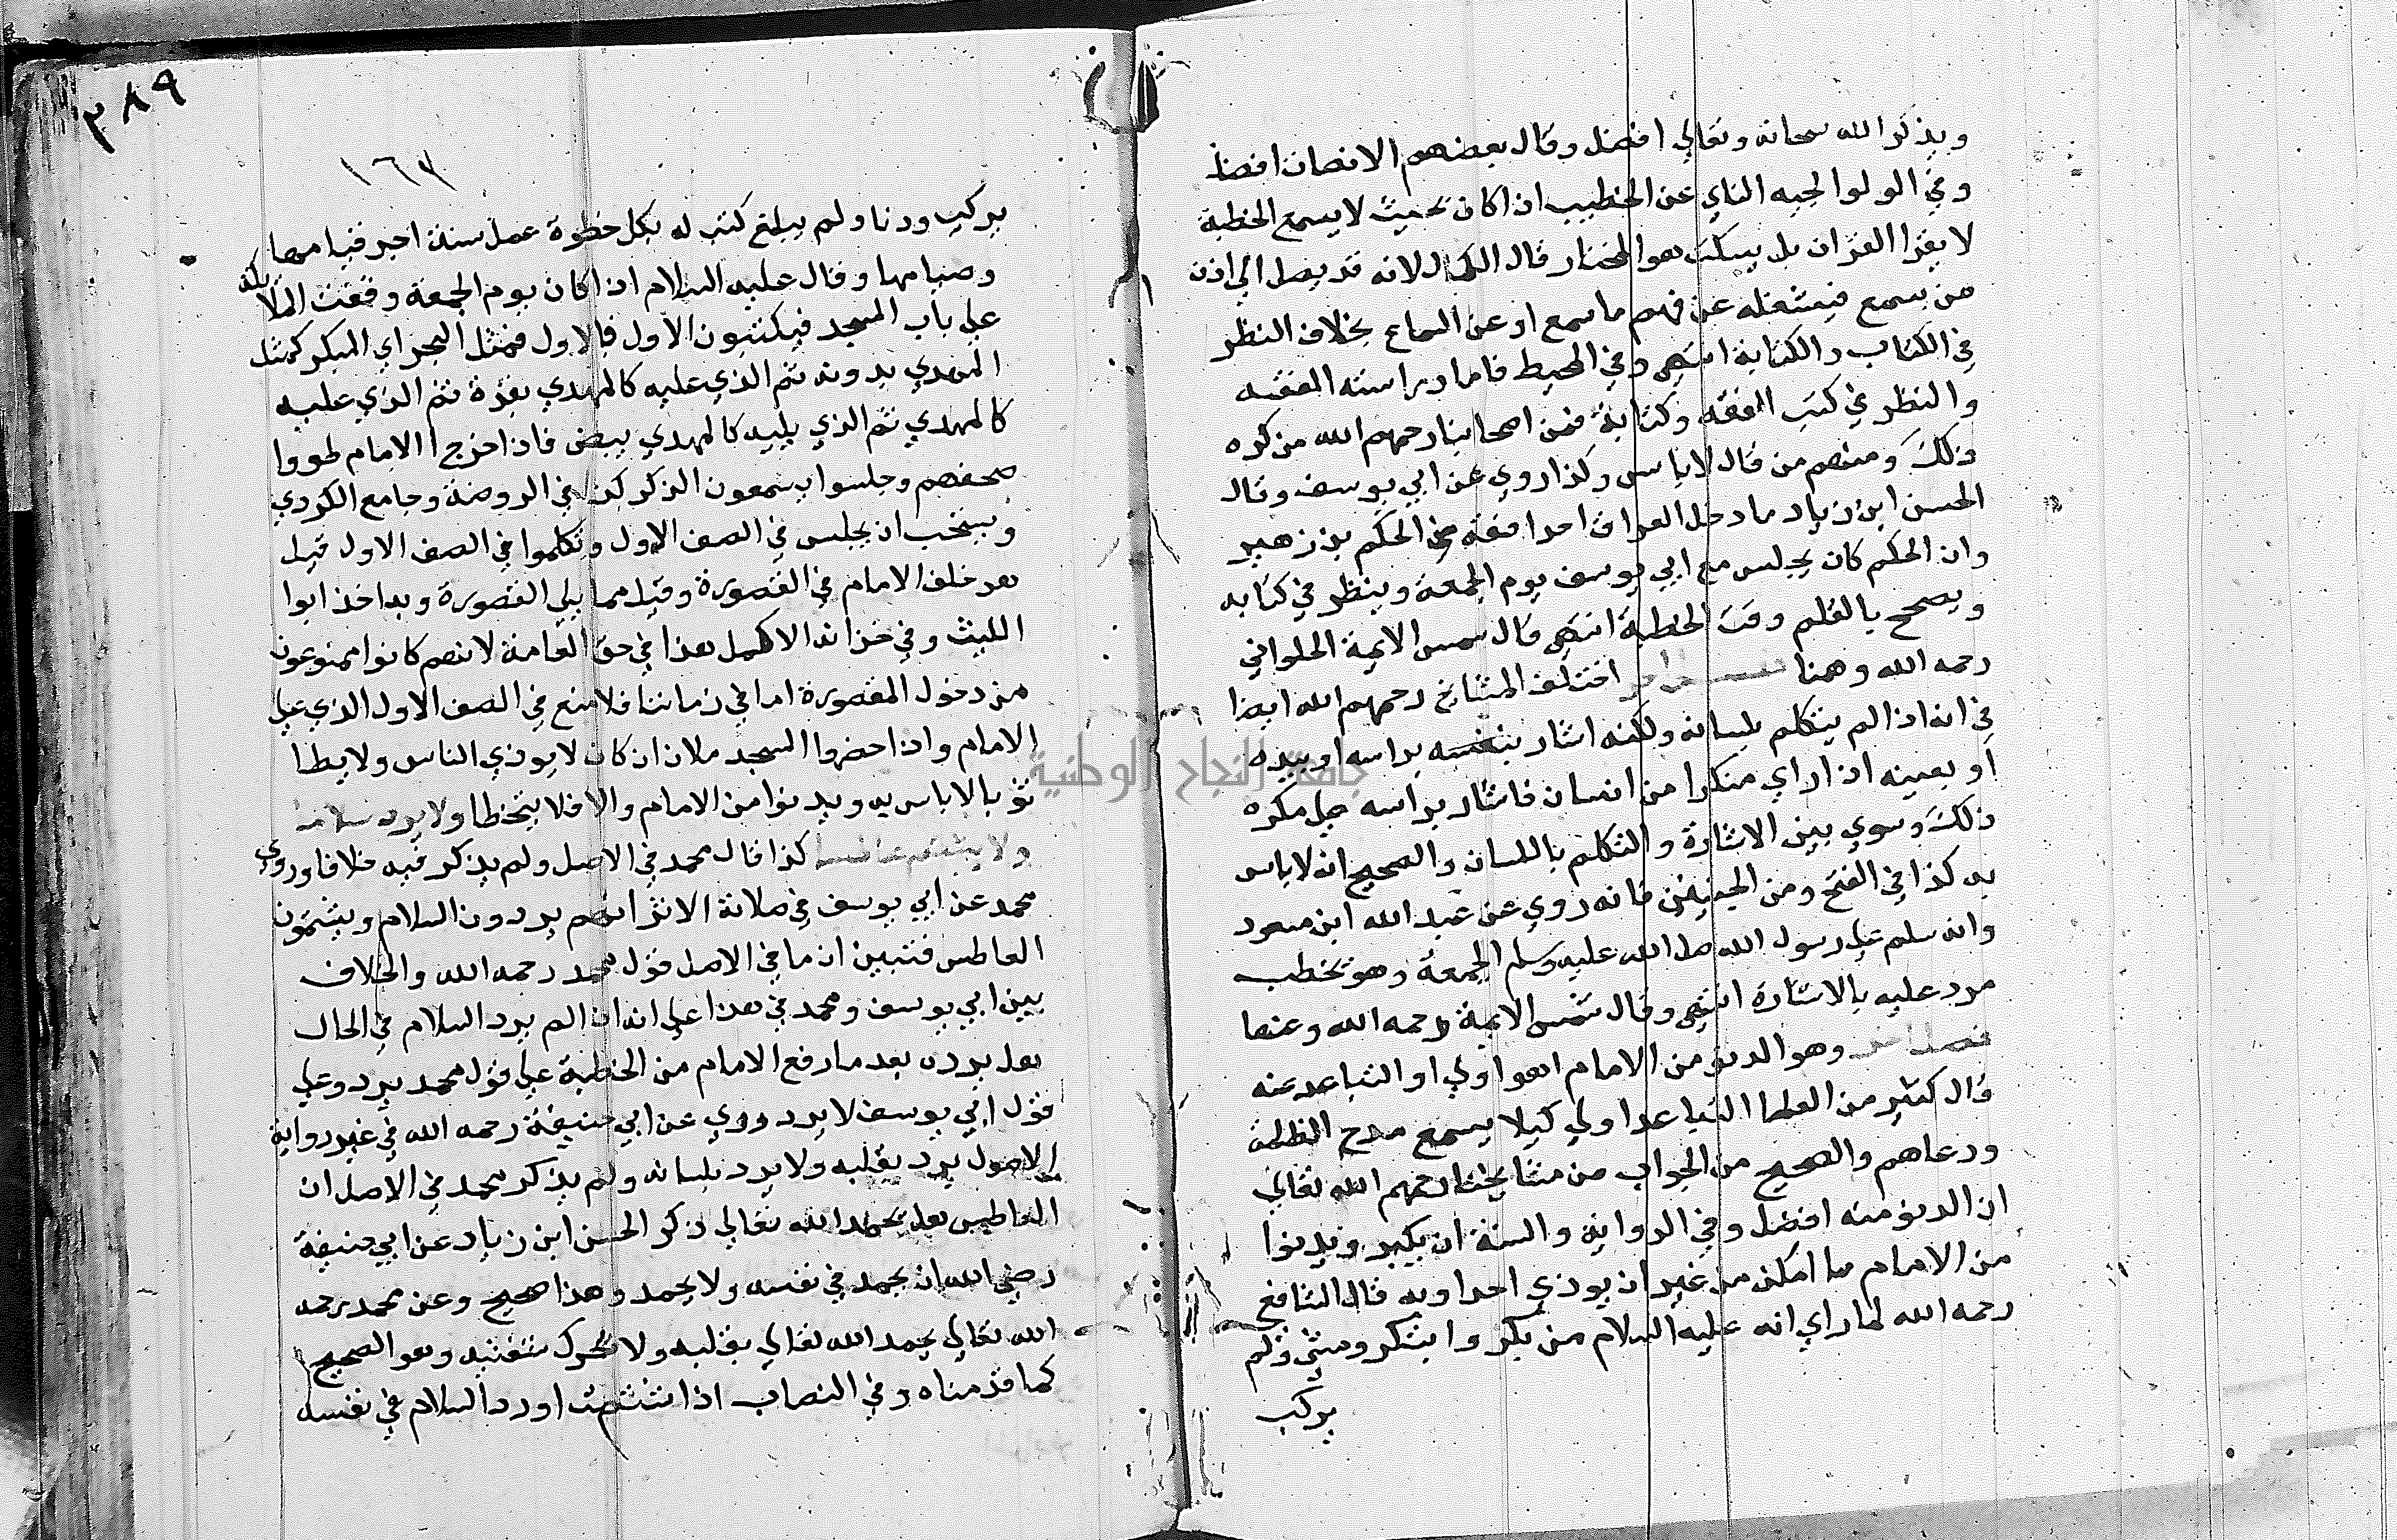 ويذكر الله سبحانه وتعالي افضل وقال بعضهم الانصات افضل
وفي الولوالجيه الناي عن الخطيب اذا كان بحيث لا يسمع الخطبة
لا يقرا القران بل يسكت هو المختار قال الكمال لانه قد يصل الي اذن
من يسمع فيشغله عن فهم ما سمع او عن السماع بخلاف النظر
في الكتاب والكتابة انتهى وفي المحيط فاما دراسته الفقه
والنظر في كتب الفقه وكتابة فمن اصحابنا رحمهم الله من كره
ذلك ومنهم من قال لا باس وكذا روي عن ابي يوسف وقال
الحسن ابن زياد ما دخل العراق احدا فقه من الحكم بن زهير
وان الحكم كان يجلس مع ابي يوسف يوم الجمعة وينظر في كتابه
ويصحح بالقلم وقت الخطبة انتهى قال شمس الايمة الحلواني
رحمه الله وهنا اختلف المشايخ رحمهم الله ايضا
في انه اذا لم يتكلم بلسانه ولكنه اشار بنفسه براسه او بيده
او بعينه اذا راي منكرا من انسان فاشار براسه هل مكره
ذلك وسوي بين الاشارة والتكلم باللسان والصحيح انه لا باس
به كذا في الفتح ومن فانه روي عن عبد الله ابن مسعود
وانه سلم علي رسول الله صل الله عليه وسلم الجمعة وهو يخطب
مرد عليه بالاشارة انتهى وقال شمس الايمة رحمه الله وعنها
فصل اخر وهو الدنو من الامام اهو اولي او التباعد عنه
قال كثير من العلما التباعد اولي كيلا يسمع مدح الظلمة
ودعاهم والصحيح من الجواب من مشايخنا رحمهم الله تعالي
ان الدنو منه افضل وفي الرواية والسنة ان يكبر ويدنوا
من الامام ما امكن من غير ان يوذي احدا وبه قال الشافع
رحمه الله لما راي انه عليه السلام من بكر وابتكر ومشى ولم
يركب
٣٨٩
١٦٧
يركب ودنا ولم يبلغ كتب له بكل خطوة عمل سنة اجر قيامها
وصيامها وقال عليه السلام اذا كان يوم الجمعة وقفت الملائكة
علي باب المسجد فيكتبون الاول فالاول فمثل المهجر اي المبكر كمثل
المهدي بدونه ثم الذي عليه كالمهدي بقرة ثم الذي عليه
كالمهدي ثم الذي يليه كالمهدي بيض فاذا خرج الامام طووا
صحفهم وجلسوا يسمعون الذكر كذا في الروضة وجامع الكردي
ويستحب ان يجلس في الصف الاول وتكلموا في الصف الاول قيل
هو خلف الامام في المقصورة وقيل مما يلي المقصورة وبه اخذ ابوا
الليث وفي خزانة الاكمل هذا في حق العامة لانهم كانوا ممنوعون
من دخول المقصورة اما في زماننا فلا منع في الصف الاول الذي علي
الامام واذا حضروا المسجد ملان ان كان لا يوذي الناس ولا يطا
ثوبا لا باس به ويدنوا من الامام والا فلا يتخطا ولا يرد سلاما
ولا يشمت عاطسا كذا قال محمد في الاصل ولم يذكر فيه خلافا وروي
محمد عن ابي يوسف في صلاة الاثر انهم يردون السلام ويشمتون
العاطس فتبين ان ما في الاصل قول محمد رحمه الله والخلاف
بين ابي يوسف ومحمد في هذا علي انه اذا لم يرد السلام في الحال
هل يرده بعد ما رفع الامام من الخطبة علي قول محمد يرد وعلي
قول ابي يوسف لا يرد وروي عن ابي حنيفة رحمه الله في غير رواية
الاصول يرد بقلبه ولا يرد بلسانه ولم يذكر محمد في الاصل ان
العاطس هل يحمد الله تعالي ذكر الحسن ابن زياد عن ابي حنيفة
رضي الله ان يحمد في نفسه ولا يحمد وهذا صحيح وعن محمد رحمه
الله تعالي يحمد الله تعالي بقلبه ولا يحرك شفتيه وهو الصحيح
كما قدمناه وفي النصاب اذا شمت او رد السلام في نفسه
جامعة النجاح الوطنية